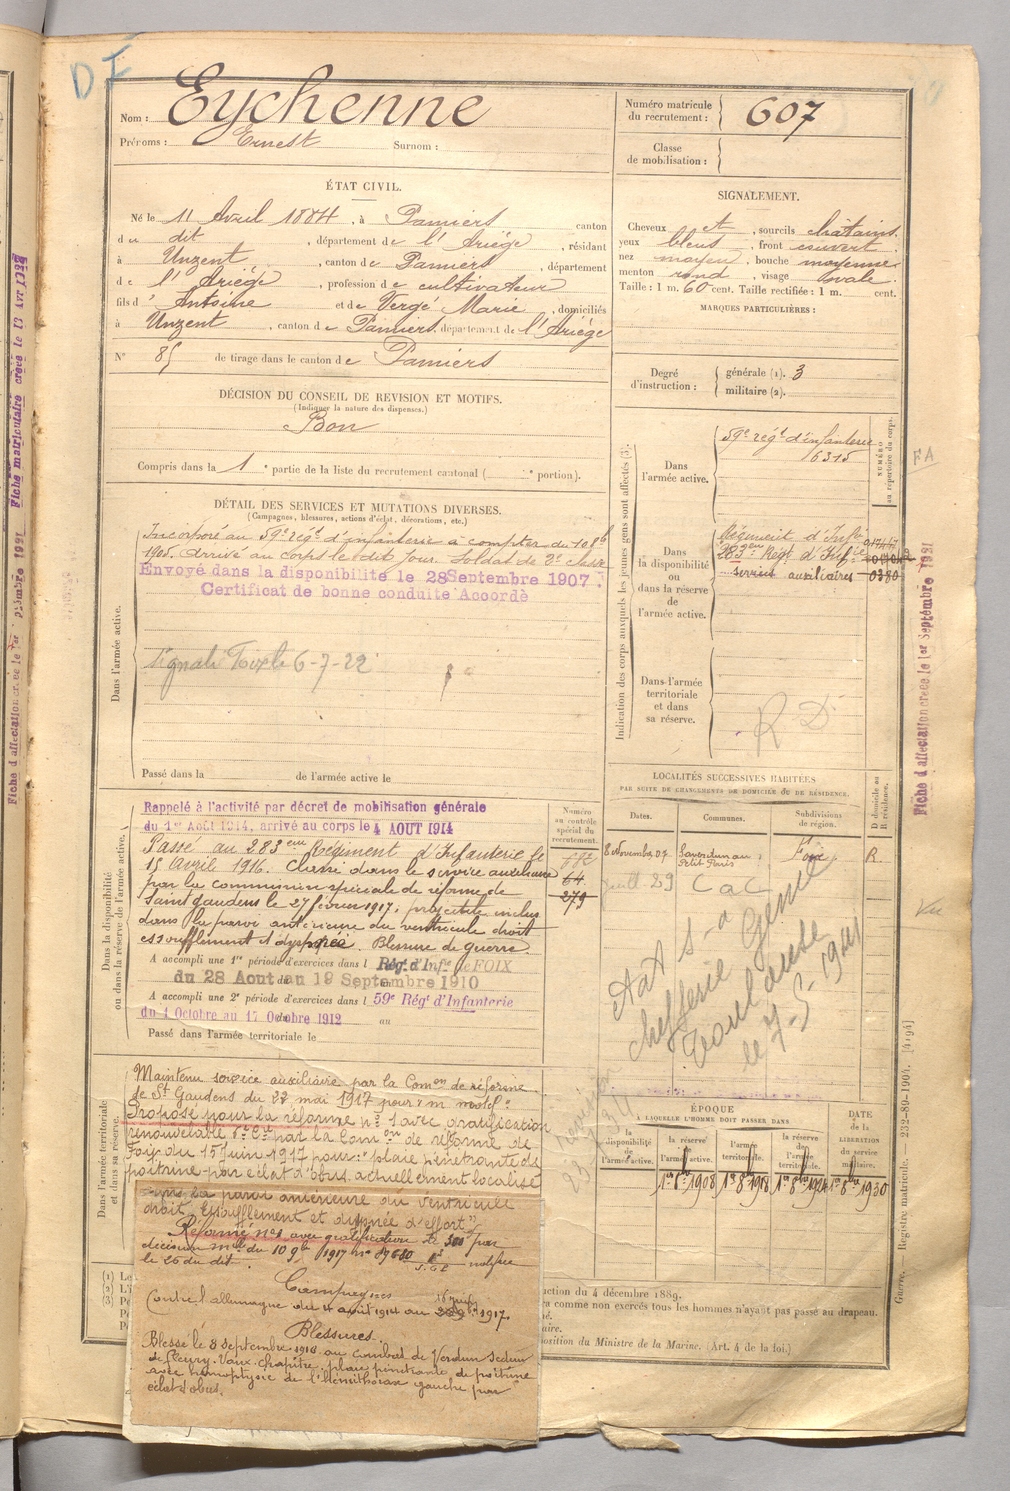 DF
Nom : Eychenne
Prénoms : Ernest Surnom :
Numéro matricule du recrutement : 607
Classe de mobilisation :
ÉTAT CIVIL.
Né le 11 Avril 1884, à Pamiers canton
du dit, département de l'Ariège, résidant
à Unzent, canton de Pamiers, département
de l'Ariège, profession de cultivateur
fils d' Antoine et de Vergé Marie, domiciliés
à Unzent, canton de Pamiers, département de l'Ariège
N° 85 de tirage dans le canton de Pamiers
SIGNALEMENT.
Cheveux et, sourcils châtains.
yeux bleus, front couvert
nez moyen, bouche moyenne
menton rond, visage ovale.
Taille : 1 m. 60 cent. Taille rectifiée : 1 m. cent.
MARQUES PARTICULIÈRES :
Degré d'instruction : générale (1). 3
militaire (2).
DÉCISION DU CONSEIL DE REVISION ET MOTIFS.
(Indiquer la nature des dispenses.)
Bon
Compris dans la 1e partie de la liste du recrutement cantonal ( e portion).
DÉTAIL DES SERVICES ET MUTATIONS DIVERSES.
(Campagnes, blessures, actions d'éclat, décorations, etc.)
Dans l'armée active.
Incorporé au 59e régt d'infanterie à compter du 10 8b
1905. Arrivé au corps le dit jour. Soldat de 2e classe
Envoyé dans la disponibilité le 28 Septembre 1907.
Certificat de bonne conduite Accordé
Signalé Foix le 6-7-22
Passé dans la de l'armée active le
Indication des corps auxquels les jeunes gens sont affectés (3).
NUMÉRO au répertoire du corps.
Dans l'armée active.
59e régt d'infanterie
6315
Dans la disponibilité ou dans la réserve de l'armée active.
Régiment d'Infie
283eme Régt d'Infie
services auxiliaires 0380
Dans l'armée territoriale et dans sa réserve.
R D
FA
Fiche d'affectation créée le 1er Septembre 1921
Fiche d'affectation créée le 1er Septembre 1921 Fiche matriculaire créée le 13 Avr
Dans la disponibilité ou dans la réserve de l'armée active.
Numéro au contrôle spécial du recrutement.
64
279
Rappelé à l'activité par décret de mobilisation générale
du 1er Août 1914, arrivé au corps le 4 AOUT 1914
Passé au 283eme Régiment d'Infanterie le
15 avril 1916. Classé dans le service auxiliaire
par la commission spéciale de réforme de
Saint gaudens le 27 février 1917; projectile inclus
dans la paroi antérieure du ventricule droit
essoufflement et dyspnée. Blessure de guerre.
A accompli une 1re période d'exercices dans l Régt d'Infie de FOIX
du 28 Aout au 19 Septembre 1910
A accompli une 2e période d'exercices dans l 59e Régt d'Infanterie
du 1 Octobre au 17 Octobre 1912 au
Passé dans l'armée territoriale le
LOCALITÉS SUCCESSIVES HABITÉES
PAR SUITE DE CHANGEMENTS DE DOMICILE OU DE RÉSIDENCE.
Dates. Communes. Subdivisions de région. D domicile ou R résidence.
8 Novembre 07 Saverdun au Petit Paris Foix R.
29 Cac
Vu
Aat
chefferie Génie
Toulouse
le 7-5-1941
Dans l'armée territoriale et dans sa réserve.
Maintenu service auxiliaire par la Comon de réforme
de St Gaudens du 22 mai 1917 pour: m. motif.
Proposé pour la réforme n° 1 avec gratification
renouvelable par la Comon de réforme de
Foix du 15 Juin 1917 pour: "plaie pénétrante de
poitrine par éclat d'obus actuellement localisé
dans la paroi antérieure du ventricule
droit. Essoufflement et dyspnée d'effort"
Réformé n° 1 avec gratification de 300 par
décision mlle du 10 9b 1917 notifiée
le 26 du dit.
Campagnes
Contre l'allemagne du 4 août 1914 au 1917.
Blessures.
Blessé le 8 septembre 1916 au combat de Verdun secteur
de Fleury-Vaux-Chapitre, plaie pénétrante de poitrine
avec hémoptysie de l'hémithorax gauche par
éclat d'obus.
ÉPOQUE
À LAQUELLE L'HOMME DOIT PASSER DANS
DATE de la LIBÉRATION du service militaire.
la disponibilité de l'armée active. la réserve de l'armée active. l'armée territoriale. la réserve de l'armée territoriale.
1er 8bre 1908 1er 8bre 1918 1er 8bre 1924 1er 8bre 1930
(1)
(2)
(3)
ction du 4 décembre 1889.
ra comme non exercés tous les hommes n'ayant pas passé au drapeau.
position du Ministre de la Marine. (Art. 4 de la loi.)
Guerre. — Registre matricule. — 232-89-1904. [4194]